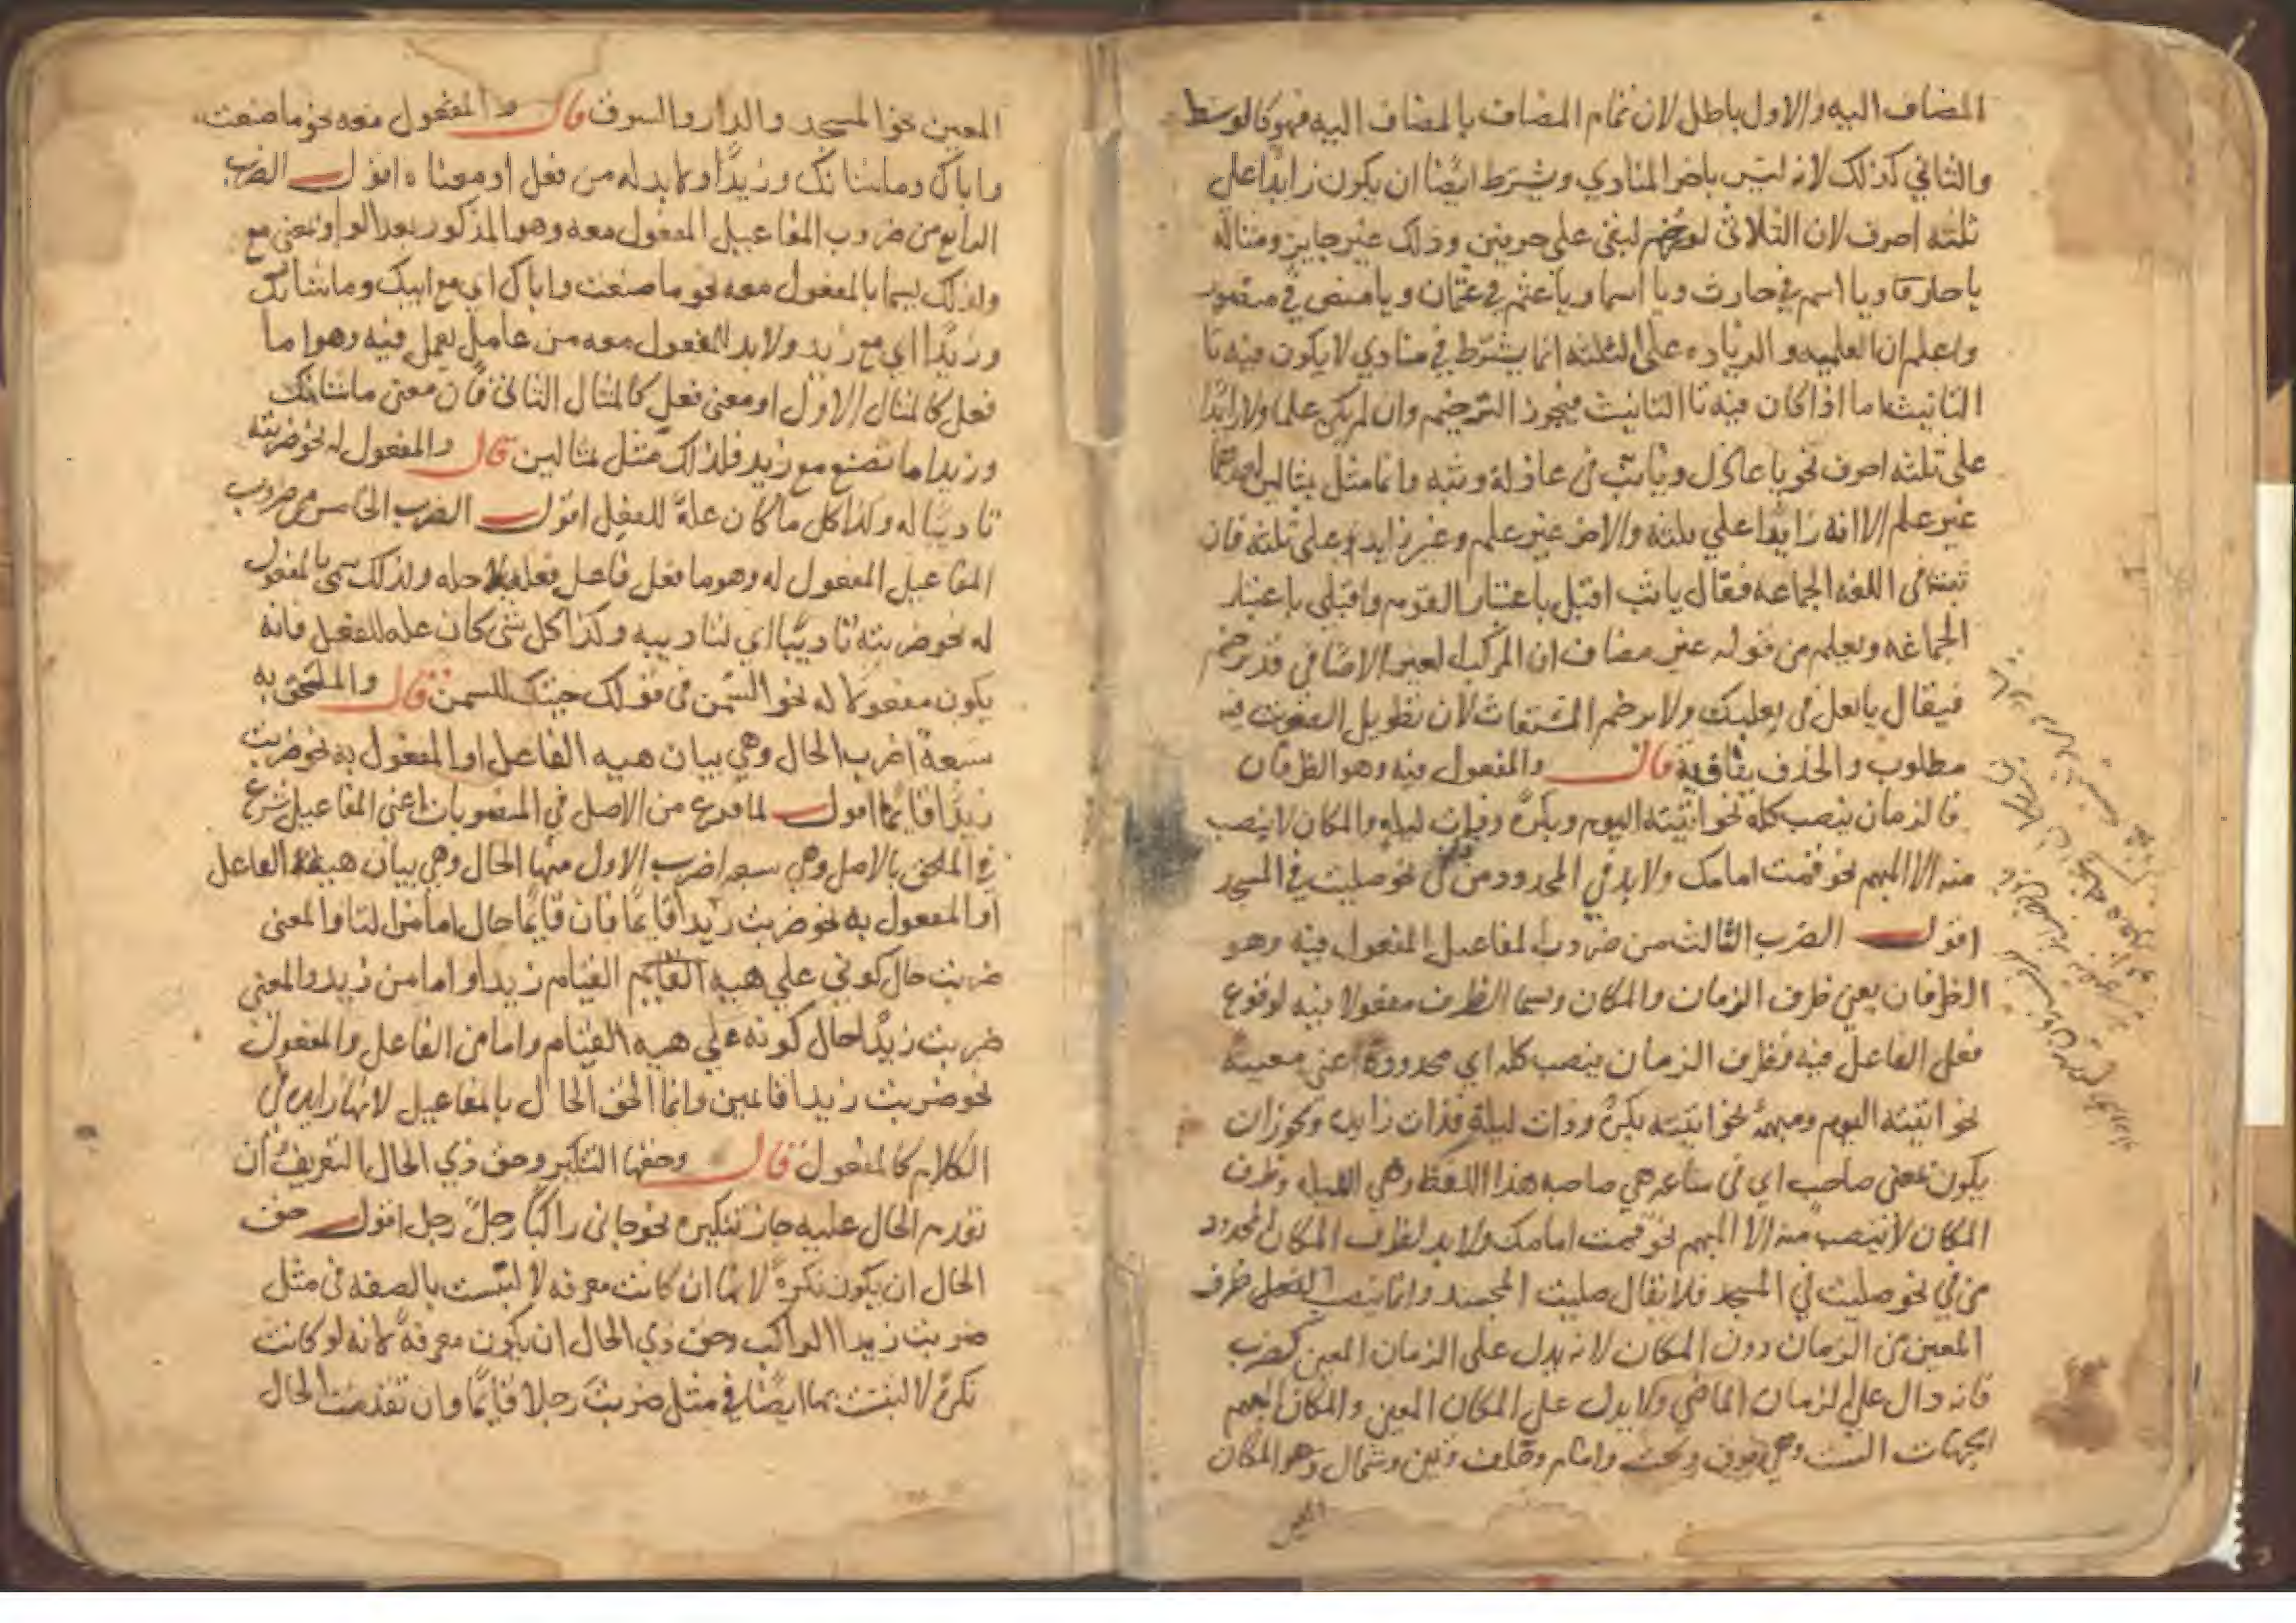 المضاف اليه والاول باطل لان تمام المضاف بالمضاف اليه فهو كالوسط
والثاني كذلك لانه ليس باخر المنادي ويشترط ايضا ان يكون زايدا علي
ثلثه احرف لان الثلاثى لو رخم لبقى على حرفين وذلك غير جايز ومثاله
يا حار ويا اسم في حارث ويا اسما ويا عثم في عثمان ويا منص في منصور
واعلم ان العلميه والزياده على الثلثه انما يشترط في منادي لا يكون فيه تا
التانيث اما اذا كان فيه تا التانيث فيجوز الترخيم وان لم يكن علما ولا زايدا
على ثلثه احرف نحو يا عاذل ويا ثب فى عاذلة وثبه وانما مثل بمثالين احدهما
غير علم الا انه زايدا علي ثلثه والاخر غير علم وغير زايد على ثلثه فان
ثبة فى اللغه الجماعه فقال يا ثب اقبل باعتبار القوم واقبلي باعتبار
الجماعه ويعلم من قوله غير مضاف ان المركب لغير الاضافى قد يرخم
فيقال يا بعل فى بعلبك ولا يرخم المستغاث لان تطويل الصوت فيه
مطلوب والحذف ينافيه قال والمفعول فيه وهو الظرفان
فالزمان ينصب كله نحو اتيته اليوم وبكرة وذات ليلة والمكان لا ينصب
منه الا المبهم نحو قمت امامك ولا بد في المحدود من في نحو صليت في المسجد
اقول الضرب الثالث من ضروب المفاعيل المفعول فيه وهو
الظرفان يعني ظرف الزمان والمكان ويسما الظرف مفعولا فيه لوقوع
فعل الفاعل فيه فظرف الزمان ينصب كله اي محدودة اعني معينة
نحو اتيته اليوم ومبهمة نحو اتيته بكرة وذات ليلة فذات زايده ويجوز ان
يكون بمعنى صاحب اي فى ساعه هي صاحبه هذا اللفظ وهي الليله وظرف
المكان لا ينصب منه الا المبهم نحو قمت امامك ولا بد لظرف المكان المحدود
من في نحو صليت في المسجد فلا يقال صليت المسجد وانما ينصب الفعل ظرف
المعين من الزمان دون المكان لانه يدل على الزمان المعين كضرب
فانه دال علي الزمان الماضي ولا يدل على المكان المعين والمكان المبهم
الجهات الست وهي فوق وتحت وامام وخلف ويمين وشمال وهو المكان
المعين
المعين نحو المسجد والدار والسوق قال والمفعول معه نحو ما صنعت
واباك وما شانك وزيدا ولا بد له من فعل او معناه اقول الضرب
الرابع من ضروب المفاعيل المفعول معه وهو المذكور بعد الواو بمعنى مع
ولذلك يسما بالمفعول معه نحو ما صنعت واباك اي مع ابيك وما شانك
وزيدا اي مع زيد ولا بد للمفعول معه من عامل يعمل فيه وهو اما
فعل كالمثال الاول او معنى فعل كالمثال الثانى فان معنى ما شانك
وزيدا ما تصنع مع زيد فلذلك مثل بمثالين قال والمفعول له نحو ضربته
تاديبا له وكذا كل ما كان علة للفعل اقول الضرب الخامس من ضروب
المفاعيل المفعول له وهو ما فعل فاعل فعله لاجله ولذلك سمى بالمفعول
له نحو ضربته تاديبا اي لتاديبه وكذا كل شي كان عله للفعل فانه
يكون مفعولا له نحو السمن فى قولك جيتك للسمن قال والملحق به
سبعة اضرب الحال وهي بيان هيه الفاعل او المفعول به نحو ضربت
زيدا قايما اقول لما فرغ من الاصل في المنصوبات اعنى المفاعيل شرع
في الملحق بالاصل وهي سبعه اضرب الاول منها الحال وهي بيان هيئة الفاعل
او المفعول به نحو ضربت زيدا قايما فان قايما حال اما من التا والمعنى
ضربت حال كوني علي هيه القيام زيدا واما من زيد والمعنى
ضربت زيدا حال كونه علي هيه القيام واما من الفاعل والمفعول
نحو ضربت زيدا قايمين وانما الحق الحال بالمفاعيل لانها زايده في
الكلام كالمفعول قال وحقها التنكير وحق ذي الحال التعريف فان
تقدم الحال عليه جاز تنكيره نحو جانى راكبا رجل رجل اقول حق
الحال ان يكون نكرة لانها ان كانت معرفه لا لتبست بالصفه فى مثل
ضربت زيدا الراكب وحق ذي الحال ان يكون معرفة لانه لو كانت
نكرة لا لتبست بها ايضا في مثل ضربت رجلا قايما وان تقدمت الحال